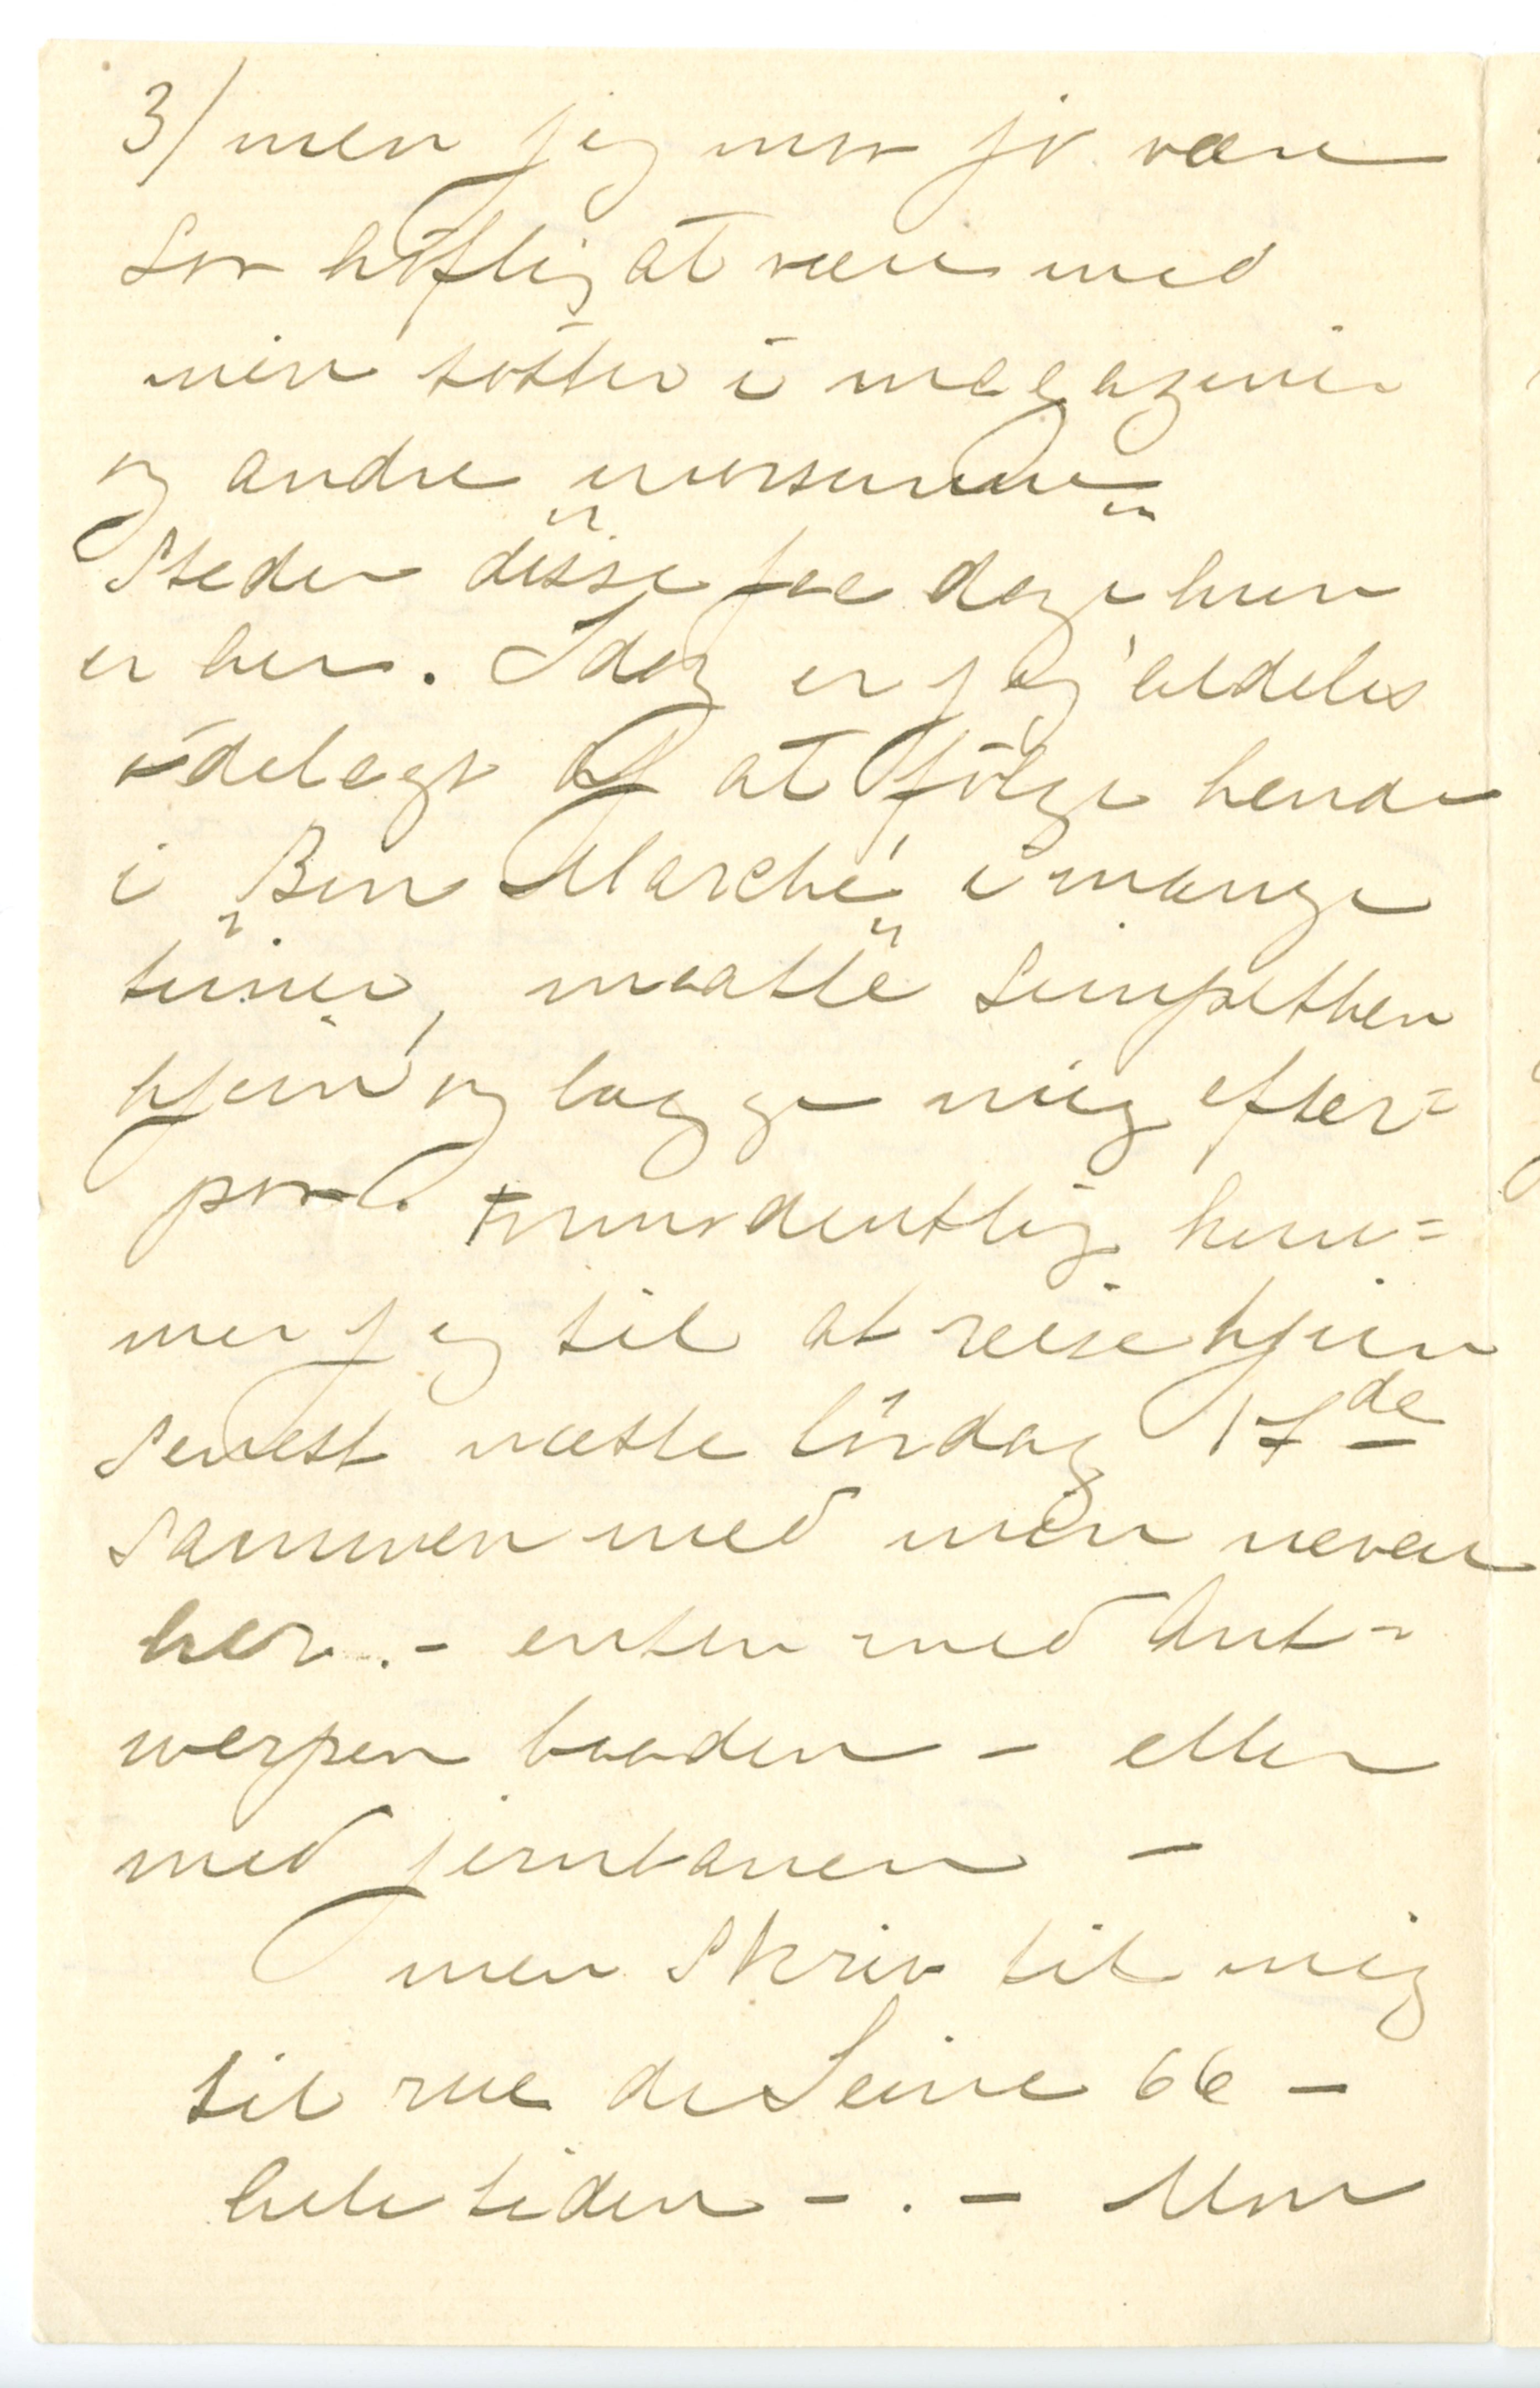 3/ men jeg maa jo være
saa høflig at være med
min søster i magaziner
og andre „morsomme"
Steder disse faa dage hun
er her. Idag er jeg aldeles
ødelagt af at følge hende
i „Bon Marché" i mange
timer, maatte simpelthen
hjem og lægge mig efter=
paa. Formodentlig kom=
mer jeg til at reise hjem
senest næste lørdag 17de
sammen med min neveu
her. - enten med Ant-
werpen baaden - eller
med jernbanen -
men skriv til mig
til rue de Seine 66 -
hele tiden - . - Mon